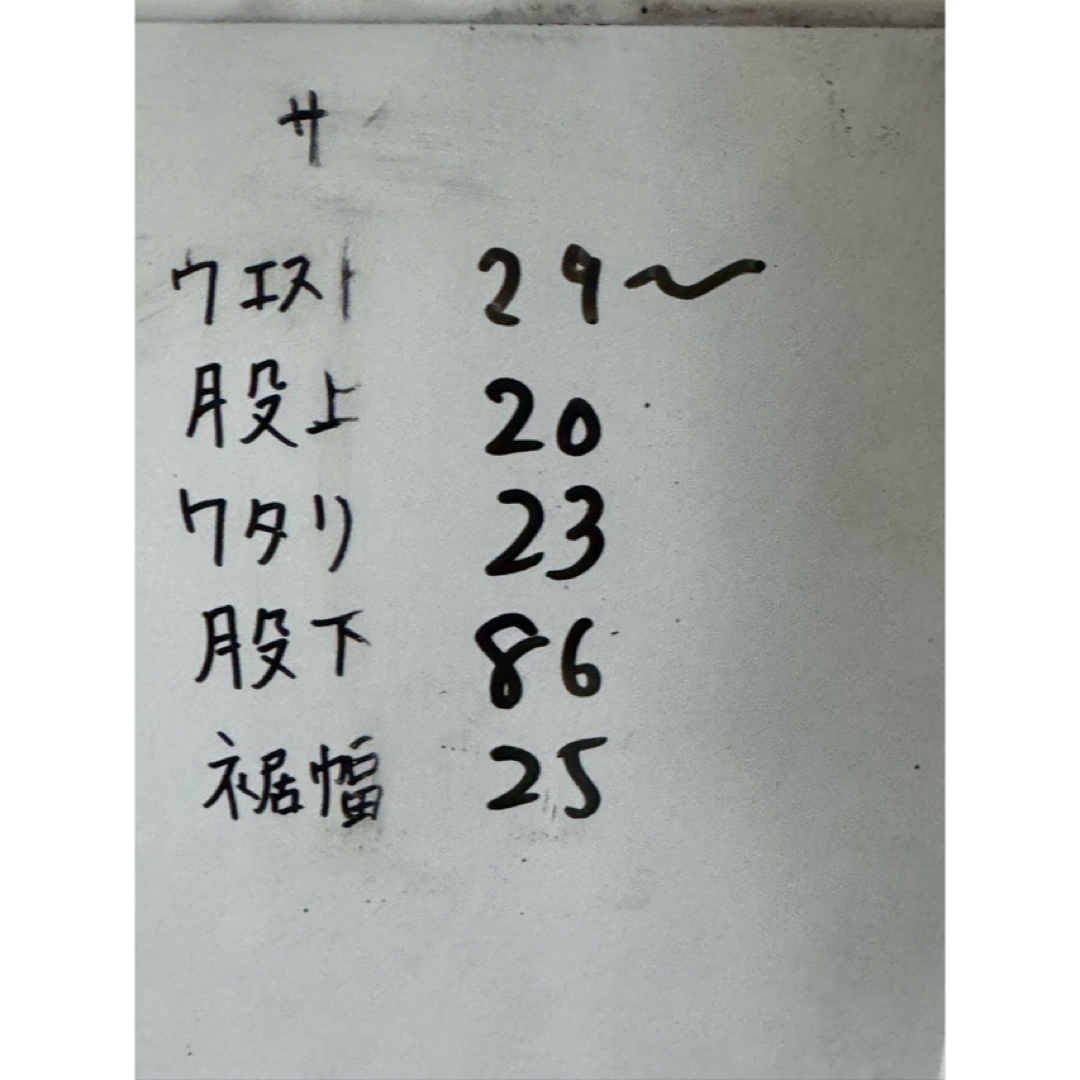 サ
ウエスト 29〜
股上 20
ワタリ 23
股下 86
裾幅 25